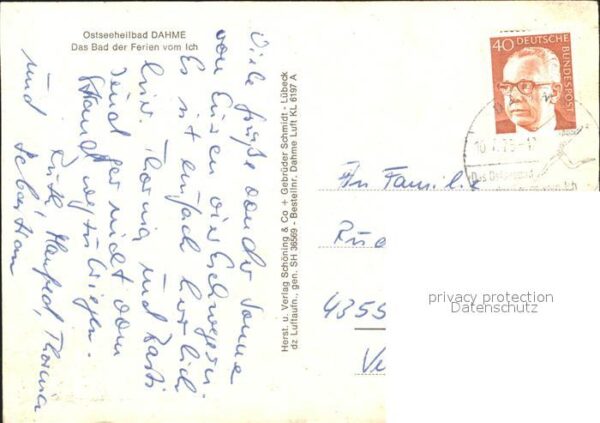 Ostseeheilbad DAHME
Das Bad der Ferien vom Ich
Viele Grüße von der Sonne
von Euren vier Schwegern.
Es ist einfach herrlich
hier. Thormia und Basti
sind gar nicht vom
Strand wegzukriegen.
Ruth, Manfred, Thormia
und Sebastian
Herst. u. Verlag Schöning & Co + Gebrüder Schmidt - Lübeck
dz Luftaufn., gen. SH 38569 - Bestellnr. Dahme Luft KL 6197 A
40 DEUTSCHE BUNDESPOST
Das Ostseebad
An Familie
Rud
4355
privacy protection
Datenschutz